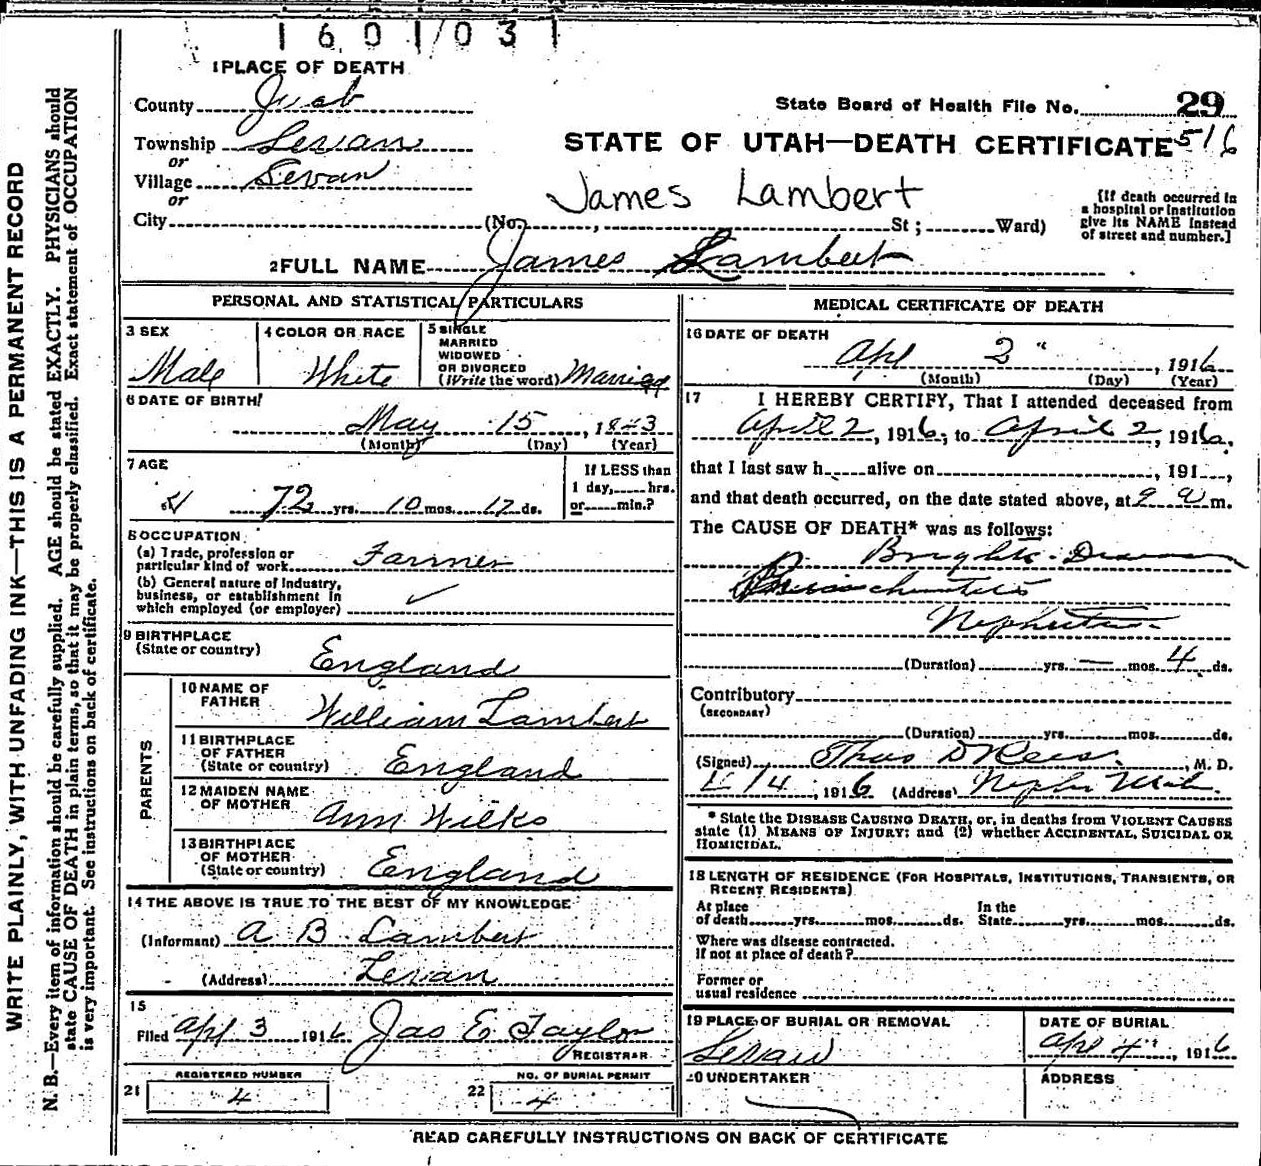 1 6 0 1/0 3 1
1 PLACE OF DEATH
County Juab
Township Levan
or
Village Levan
or
City
State Board of Health File No. 29
516
STATE OF UTAH—DEATH CERTIFICATE
James Lambert
(No. , St ; Ward)
[If death occurred in
a hospital or institution
give its NAME instead
of street and number.]
2 FULL NAME James Lambert
PERSONAL AND STATISTICAL PARTICULARS
3 SEX
Male
4 COLOR OR RACE
White
5 SINGLE
MARRIED
WIDOWED
OR DIVORCED
(Write the word) Married
6 DATE OF BIRTH
May 15, 1843
(Month) (Day) (Year)
7 AGE
72 yrs. 10 mos. 17 ds.
If LESS than
1 day, hrs.
or min.?
8 OCCUPATION
(a) Trade, profession or
particular kind of work Farmer
(b) General nature of Industry,
business, or establishment in
which employed (or employer) ✓
9 BIRTHPLACE
(State or country)
England
PARENTS
10 NAME OF
FATHER
William Lambert
11 BIRTHPLACE
OF FATHER
(State or country) England
12 MAIDEN NAME
OF MOTHER
Ann Wilks
13 BIRTHPLACE
OF MOTHER
(State or country) England
14 THE ABOVE IS TRUE TO THE BEST OF MY KNOWLEDGE
(Informant) A B Lambert
(Address) Levan
15
Filed Apl 3 1916 Jas E Taylor
REGISTRAR
21
REGISTERED NUMBER
4
22
NO. OF BURIAL PERMIT
4
MEDICAL CERTIFICATE OF DEATH
16 DATE OF DEATH
Apl 2", 1916
(Month) (Day) (Year)
17 I HEREBY CERTIFY, That I attended deceased from
April 2, 1916, to April 2, 1916,
that I last saw h alive on , 191 ,
and that death occurred, on the date stated above, at 9 a m.
The CAUSE OF DEATH* was as follows:
Brights Disease
Nephritis
(Duration) yrs. — mos. 4 ds.
Contributory
(SECONDARY)
(Duration) yrs. mos. ds.
(Signed) Thos D Rees, M. D.
4/4, 1916 (Address) Nephi Utah
* State the DISEASE CAUSING DEATH, or, in deaths from VIOLENT CAUSES
state (1) MEANS OF INJURY; and (2) whether ACCIDENTAL, SUICIDAL OR
HOMICIDAL.
18 LENGTH OF RESIDENCE (FOR HOSPITALS, INSTITUTIONS, TRANSIENTS, OR
RECENT RESIDENTS)
At place
of death yrs. mos. ds.
In the
State yrs. mos. ds.
Where was disease contracted.
If not at place of death?
Former or
usual residence
19 PLACE OF BURIAL OR REMOVAL
Levan
DATE OF BURIAL
Apl 4", 1916
20 UNDERTAKER
ADDRESS
READ CAREFULLY INSTRUCTIONS ON BACK OF CERTIFICATE
WRITE PLAINLY, WITH UNFADING INK—THIS IS A PERMANENT RECORD
N. B.—Every item of information should be carefully supplied. AGE should be stated EXACTLY. PHYSICIANS should
state CAUSE OF DEATH in plain terms, so that it may be properly classified. Exact statement of OCCUPATION
is very important. See instructions on back of certificate.